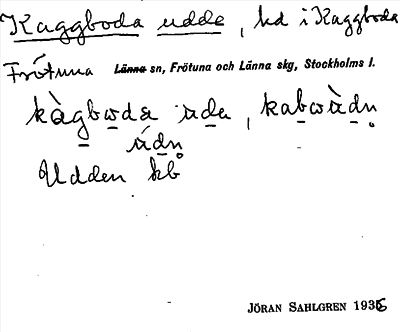 Kaggboda udde, ld i Kaggboda
Frötuna Länna sn, Frötuna och Länna skg, Stockholms l.
kàgbωda ùda, kabωùdn
údn
Udden kb
JÖRAN SAHLGREN 1936